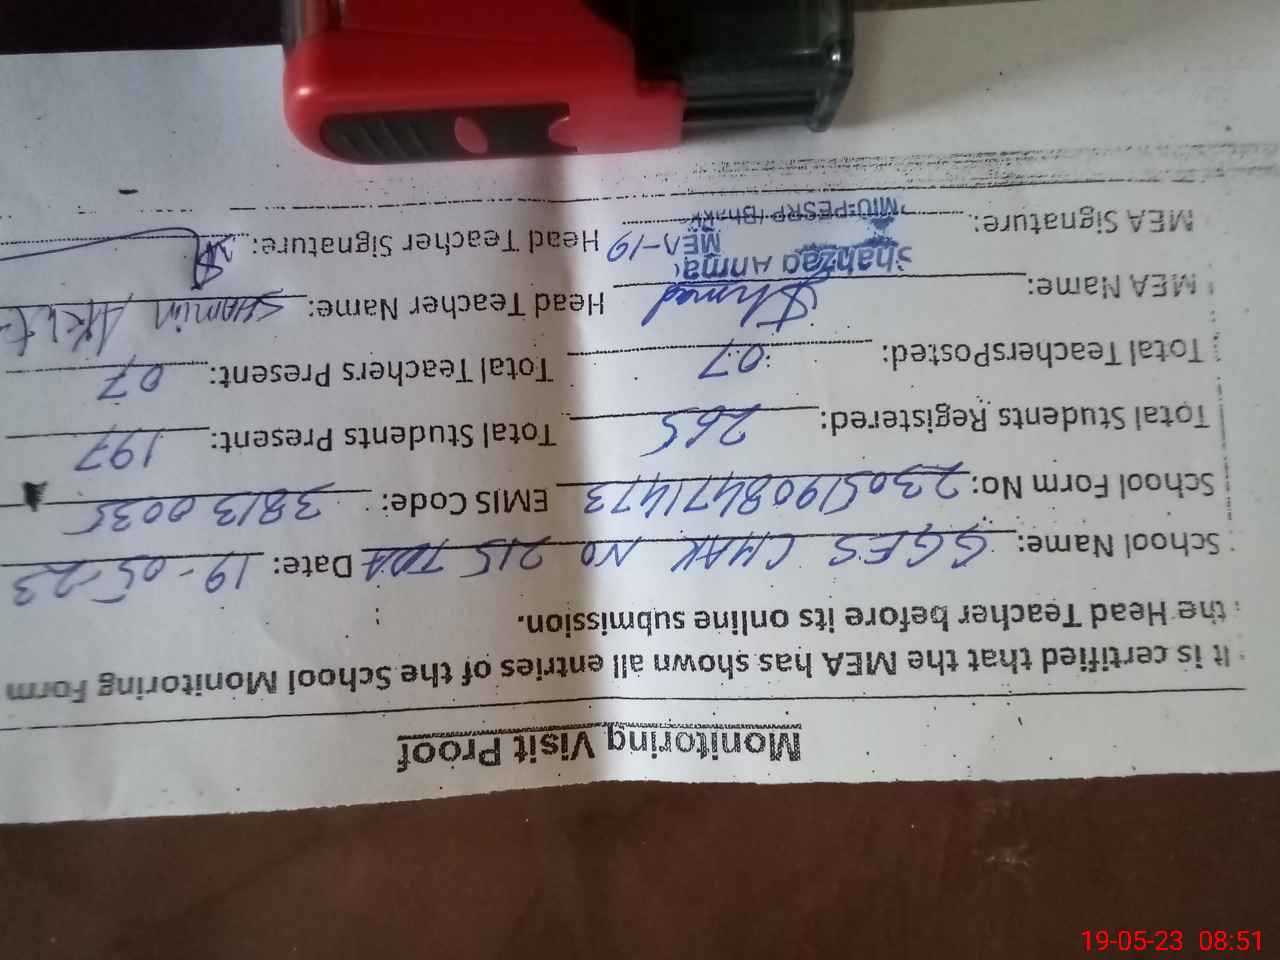 Monitoring Visit Proof
It is certified that the MEA has shown all entries of the School Monitoring Form
the Head Teacher before its online submission.
School Name: GGES CHAK NO 215 TDA Date: 19-05-23
School Form No: 23051908471473 EMIS Code: 38130035
Total Students Registered: 265 Total Students Present: 197
Total TeachersPosted: 07 Total Teachers Present: 07
MEA Name: Ahmed Head Teacher Name: SHAMIM AKHT
Shahzad Ahmad
MEA-19
MEA Signature: Head Teacher Signature:
MIU-PESRP (Bhakk
19-05-23 08:51